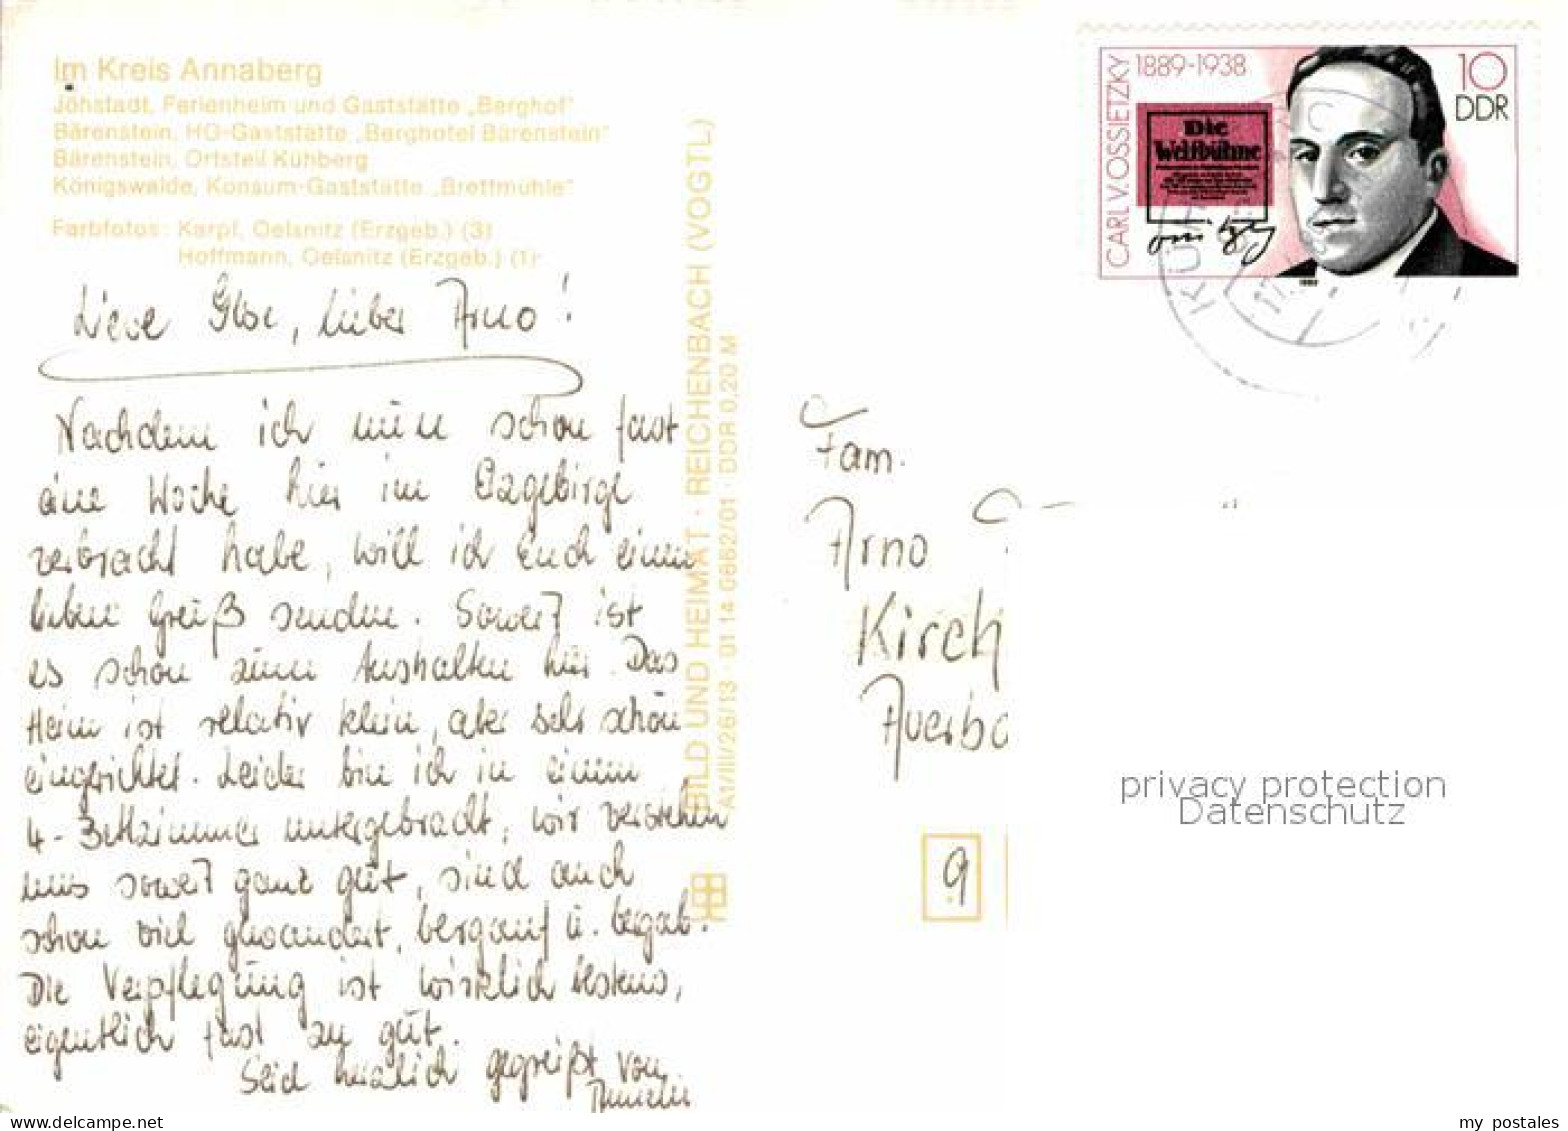 Im Kreis Annaberg
Jöhstadt, Ferienheim und Gaststätte „Berghof“
Bärenstein, HO-Gaststätte „Berghotel Bärenstein“
Bärenstein, Ortsteil Kühberg
Königswalde, Konsum-Gaststätte „Brettmühle“
Farbfotos: Karpf, Oelsnitz (Erzgeb.) (3)
Hoffmann, Oelsnitz (Erzgeb.) (1)
lieber Arno!
Nachdem ich nun schon fast
eine Woche hier im Erzgebirge
verbracht habe, will ich Euch einen
lieben Gruß senden. Soweit ist
es schon zum Aushalten hier. Das
Heim ist relativ klein, aber sehr schön
eingerichtet. Leider bin ich in einem
4-Bettzimmer untergebracht, wir verstehen
uns soweit ganz gut, sind auch
schon viel gewandert, bergauf u. bergab.
Die Verpflegung ist wirklich bestens,
eigentlich fast zu gut.
Seid herzlich gegrüßt von
BILD UND HEIMAT · REICHENBACH (VOGTL)
A1/III/26/13 · 01 14 0862/01 · DDR 0,20 M
CARL V. OSSIETZKY
1889-1938
Die
Weltbühne
10
DDR
Fam.
Arno
Kirch
Auerba
9
privacy protection
Datenschutz
my postales